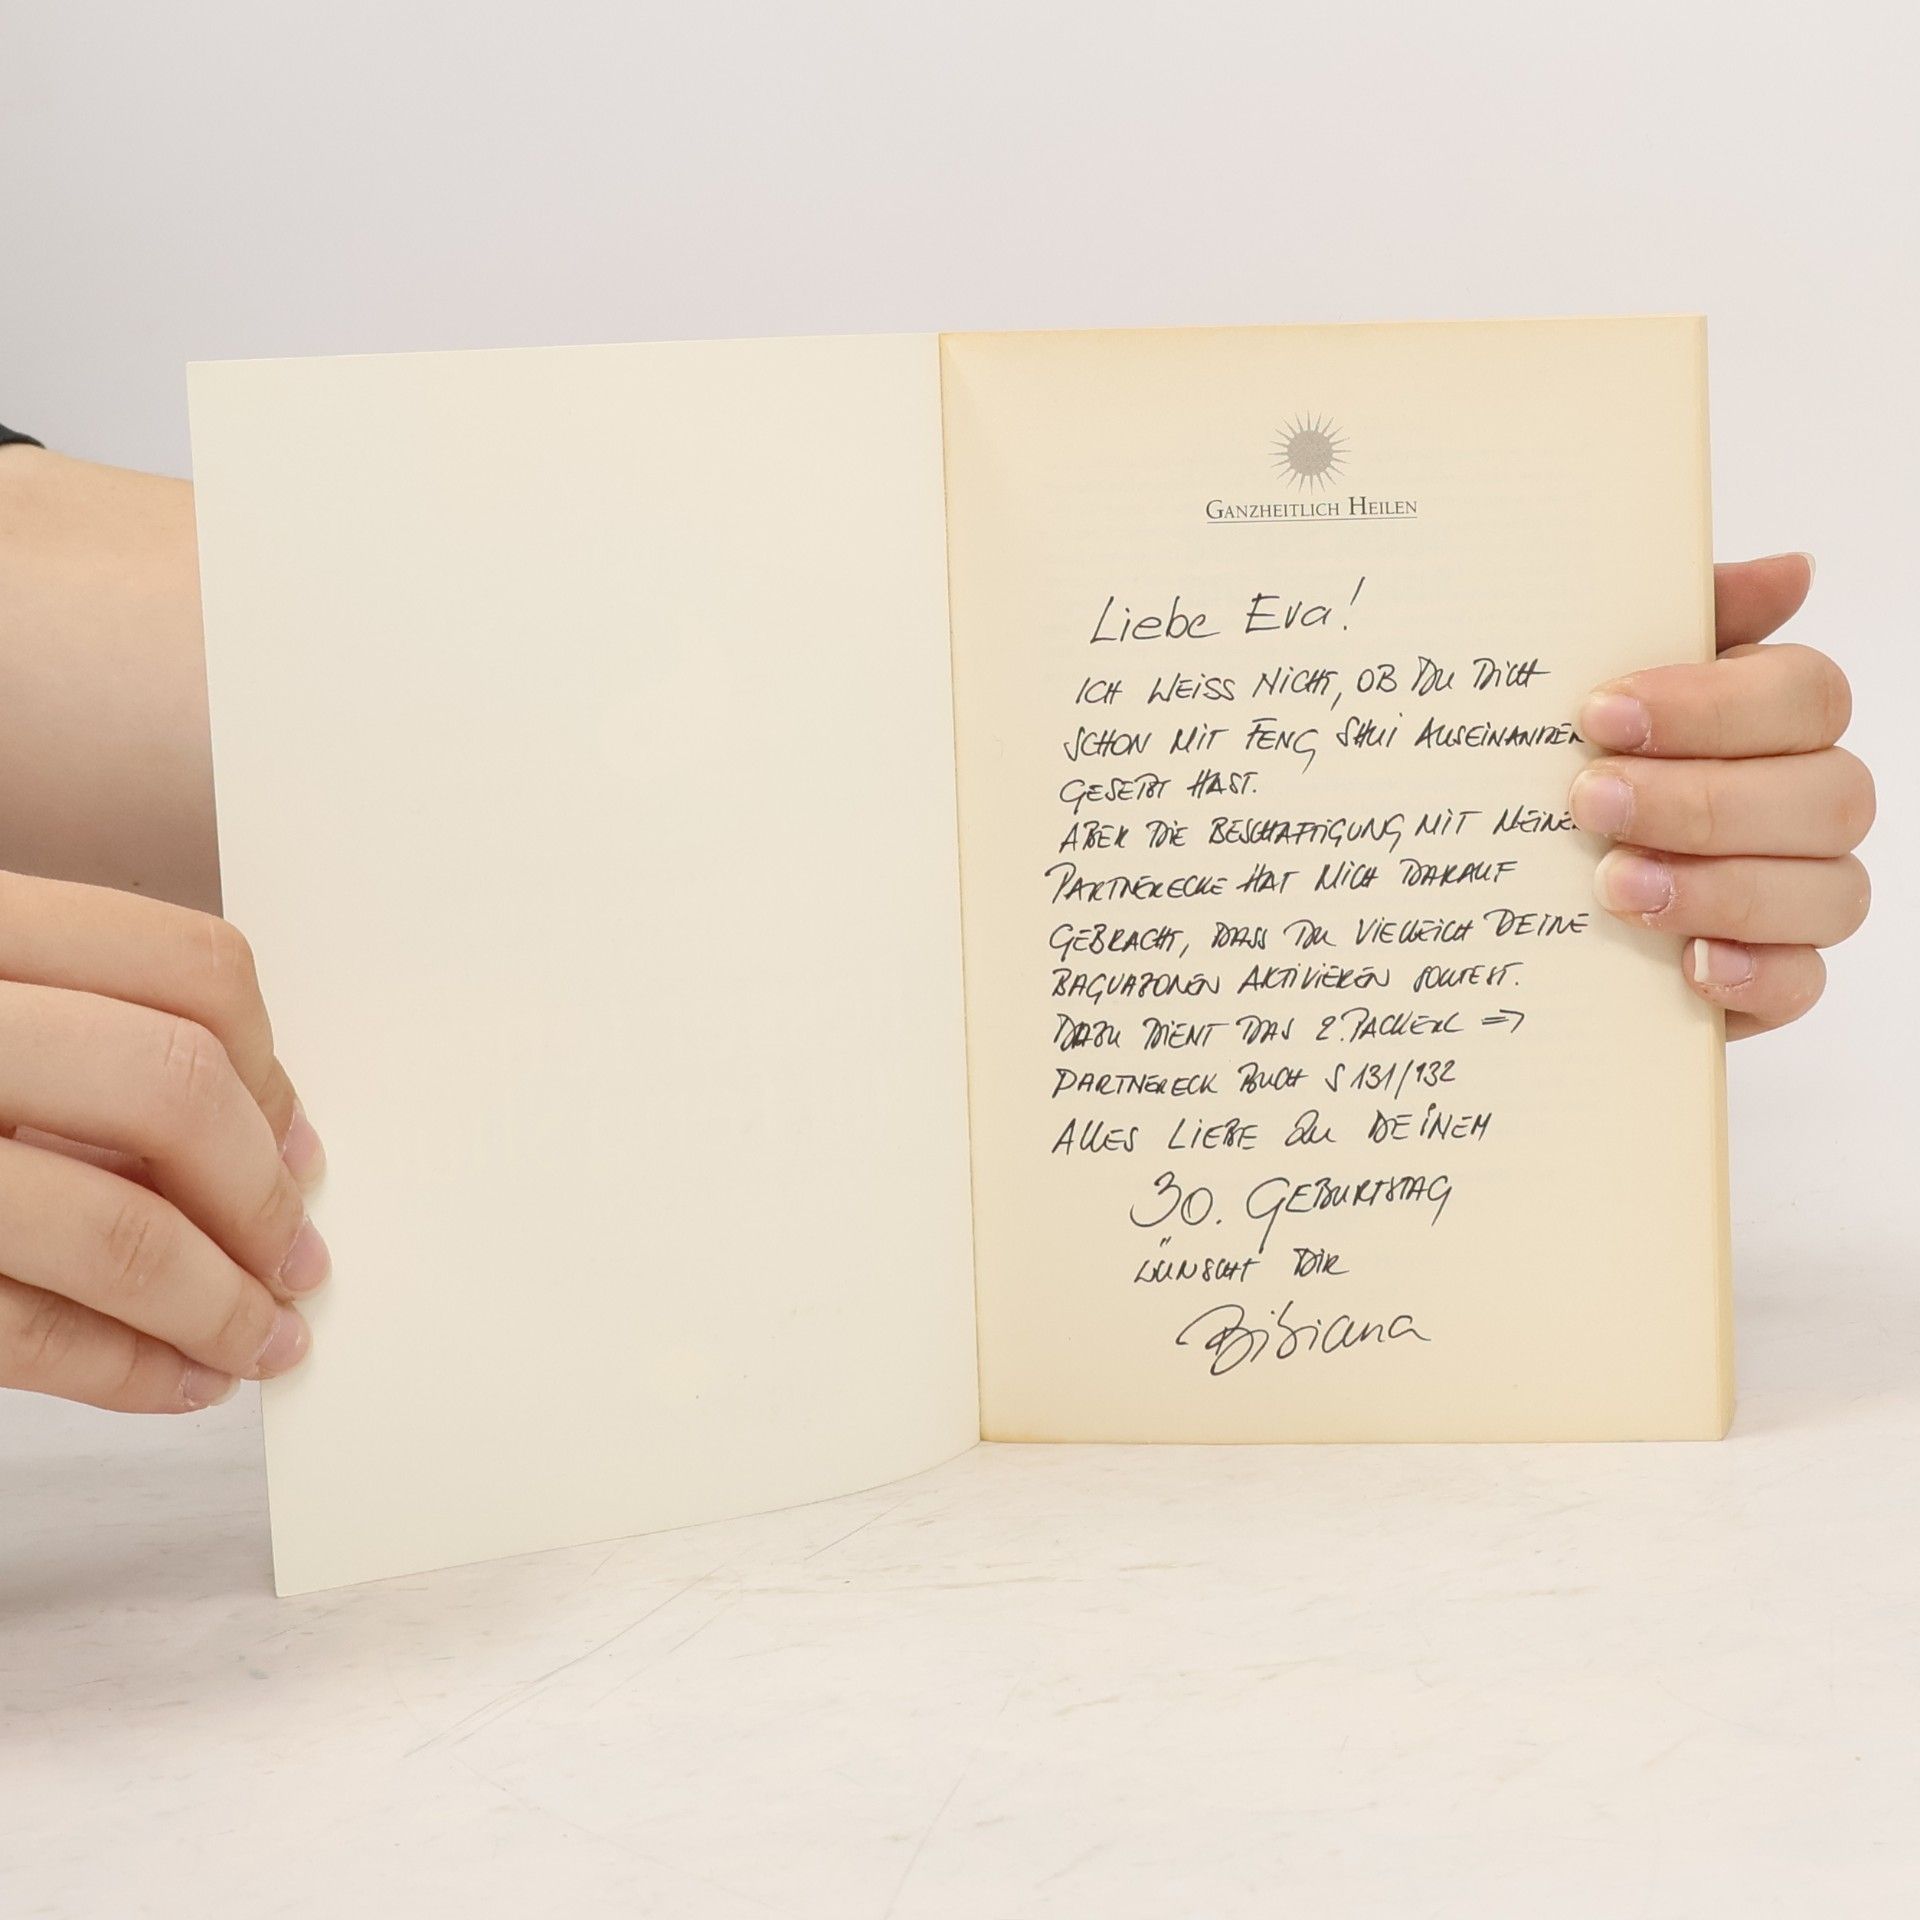 GANZHEITLICH HEILEN
Liebe Eva!
ICH WEISS NICHT, OB DU DICH
SCHON MIT FENG SHUI AUSEINANDER
GESETZT HAST.
ABER DIE BESCHÄFTIGUNG MIT MEINER
PARTNERECKE HAT MICH DARAUF
GEBRACHT, DASS DU VIELLEICH DEINE
BAGUAZONEN AKTIVIEREN SOLLTEST.
DAZU DIENT DAS 2. PACKERL =>
PARTNERECK BUCH S 131/132
ALLES LIEBE ZU DEINEM
30. GEBURTSTAG
WÜNSCHT DIR
Bibiana